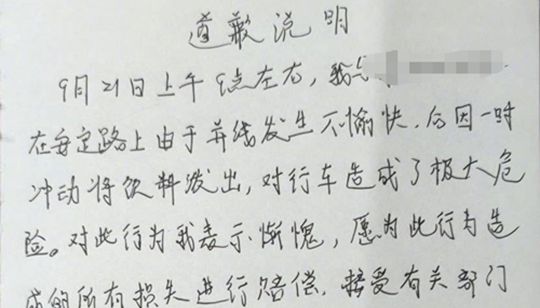 道歉说明
9月21日上午9点左右，我
在安定路上由于并线发生不愉快，后因一时
冲动将饮料泼出，对行车造成了极大危
险。对此行为我表示惭愧，愿为此行为造
成的所有损失进行赔偿，接受有关部门